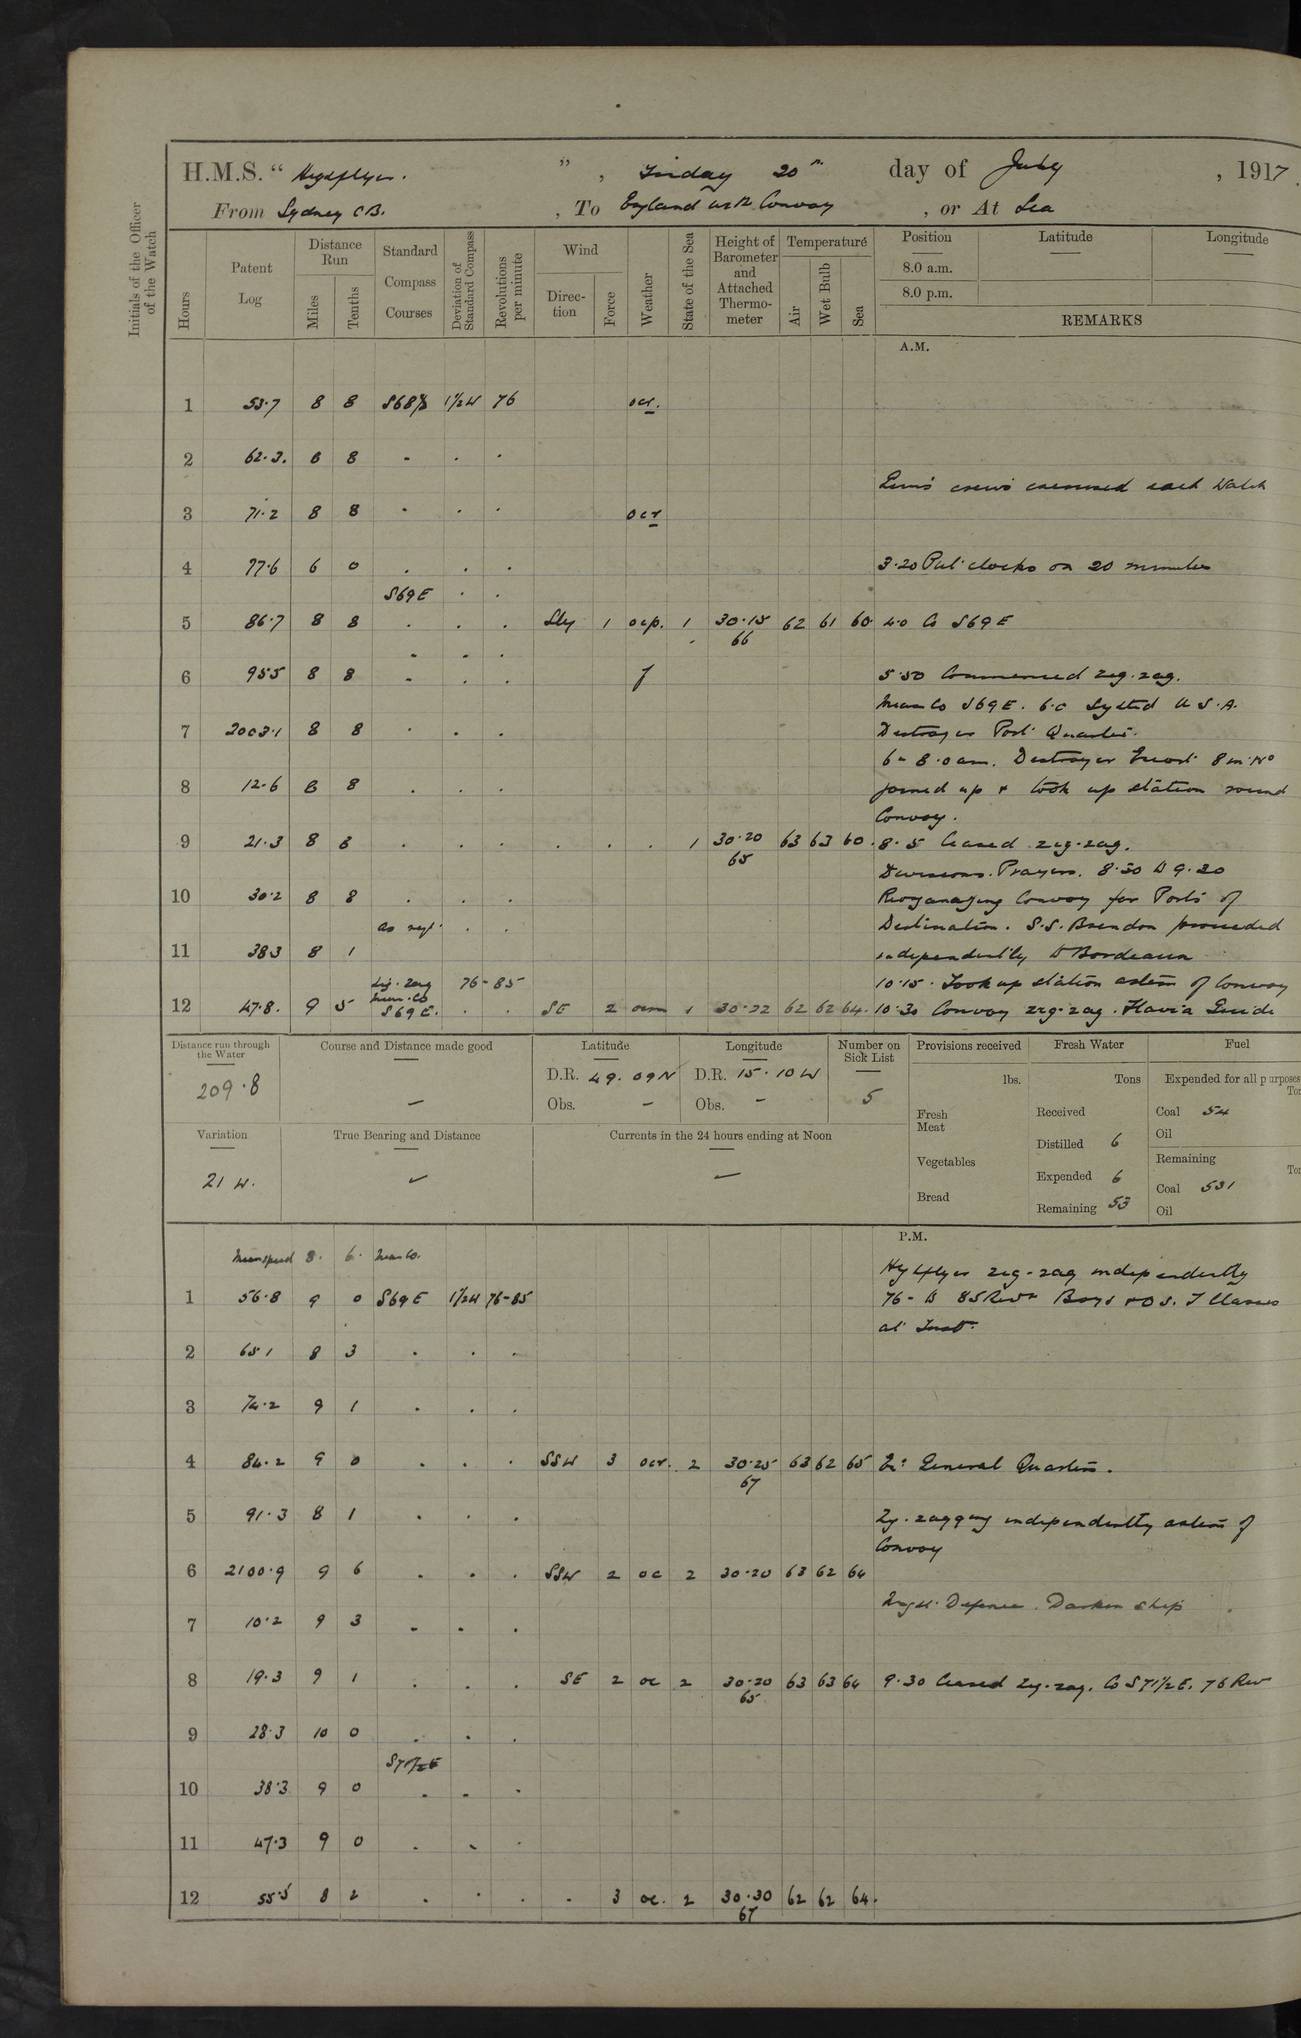 H.M.S. " Highflyer. ", Friday 20th day of July, 1917
From Sydney C.B., To England with Convoy, or At Sea
Initials of the Officer of the Watch
Hours
Patent Log
Distance Run
Miles
Tenths
Standard Compass Courses
Deviation of Standard Compass
Revolutions per minute
Wind
Direction
Force
Weather
State of the Sea
Height of Barometer and Attached Thermometer
Temperature
Air
Wet Bulb
Sea
Position Latitude Longitude
8.0 a.m.
8.0 p.m.
REMARKS
A.M.
1 53.7 8 8 1½W 76 ocr.
2 62.3. 8 8 - . .
crews exercised each Watch
3 71.2 8 8 . . . ocr
4 77.6 6 0 . . . 3.20 Put clocks on 20 minutes
S69E . .
5 86.7 8 8 . . . Sly 1 ocp. 1 30.15 62 61 60 4.0 Co S69E
66
6 955 8 8 - . . f 5.50 Commenced zig-zag.
Mean Co S69E. 6.0 Sighted U.S.A.
7 2003.1 8 8 . . . Destroyer Port Quarter.
6 - 8.0 am. Destroyer Escort 8 in No
8 12.6 8 8 . . . joined up & took up station round
Convoy.
9 21.3 8 8 . . . . . . 1 30.20 63 63 60. 8.5 Ceased zig-zag.
65
Divisions. Prayers. 8.30 to 9.30
10 30.2 8 8 . . . Reorganizing Convoy for Ports of
as req. . . Destination. S.S. Brendon proceeded
11 383 8 1 independently to Bordeaux
zig-zag 76-85 10.15. Took up station astern of Convoy
12 47.8. 9 5 mean Co S69E. . . SE 2 1 30.22 62 62 64. 10.30 Convoy zig-zag. Flavia Guide
Distance run through the Water
209.8
Course and Distance made good
-
Latitude
D.R. 49.09N
Obs. -
Longitude
D.R. 15.10W
Obs. -
Number on Sick List
5
Provisions received
lbs.
Fresh Meat
Vegetables
Bread
Fresh Water
Tons
Received
Distilled 6
Expended 6
Remaining 53
Fuel
Expended for all purposes
Coal 54
Oil
Remaining
Coal 531
Oil
Variation
21 W.
True Bearing and Distance
Currents in the 24 hours ending at Noon
P.M.
Mean speed 8. 6. Mean Co.
Highflyer zig-zag independently
1 56.8 9 0 S69E 1½W 76-85 76 - to 85 Revs Boys & O.S. T Classes
at Inst.
2 651 8 3 . . .
3 74.2 9 1 . . .
4 84.2 9 0 . . . SSW 3 ocr. 2 30.25 63 62 65 General Quarters.
67
5 91.3 8 1 . . . Zig-zagging independently astern of
Convoy
6 2100.9 9 6 . . . SSW 2 oc 2 30.20 63 62 64
Night Defence. Darken ship
7 10.2 9 3 . . .
8 19.3 9 1 . . . SE 2 oc 2 30.20 63 63 64 9.30 Ceased zig-zag. Co S71½E. 76 Rev
65
9 28.3 10 0 . . .
S71½E
10 38.3 9 0 . . .
11 47.3 9 0 . . .
12 55.5 8 2 . . . - 3 oc. 2 30.30 62 62 64.
67